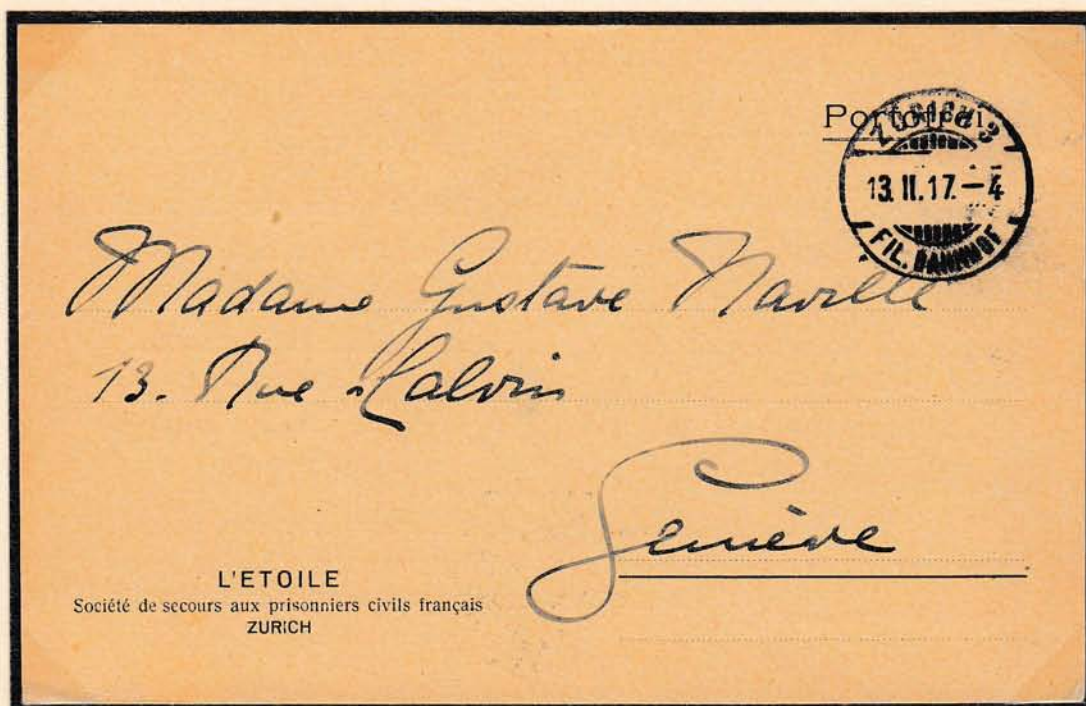 Portofrei.
ZÜRICH 3
13. II. 17. – 4
FIL. BAHNHOF
Madame Gustave Naville
13. Rue Calvin
Genève
L'ETOILE
Société de secours aux prisonniers civils français
ZURICH